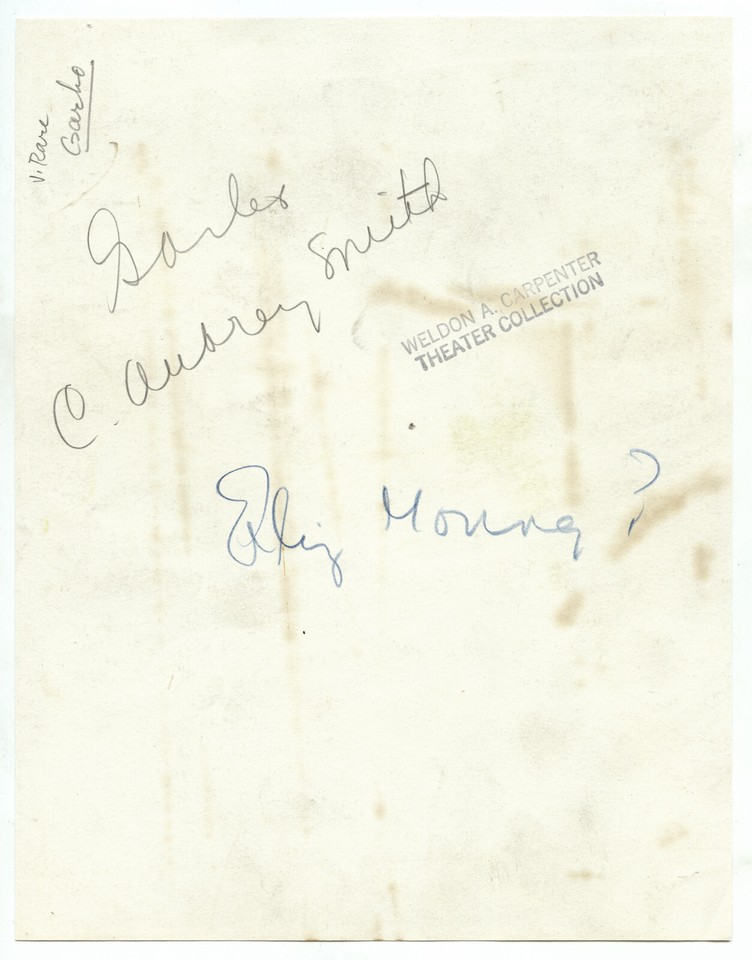 V. Rare
Garbo
Garbo
C. Aubrey Smith
WELDON A. CARPENTER
THEATER COLLECTION
Eliz Young ?